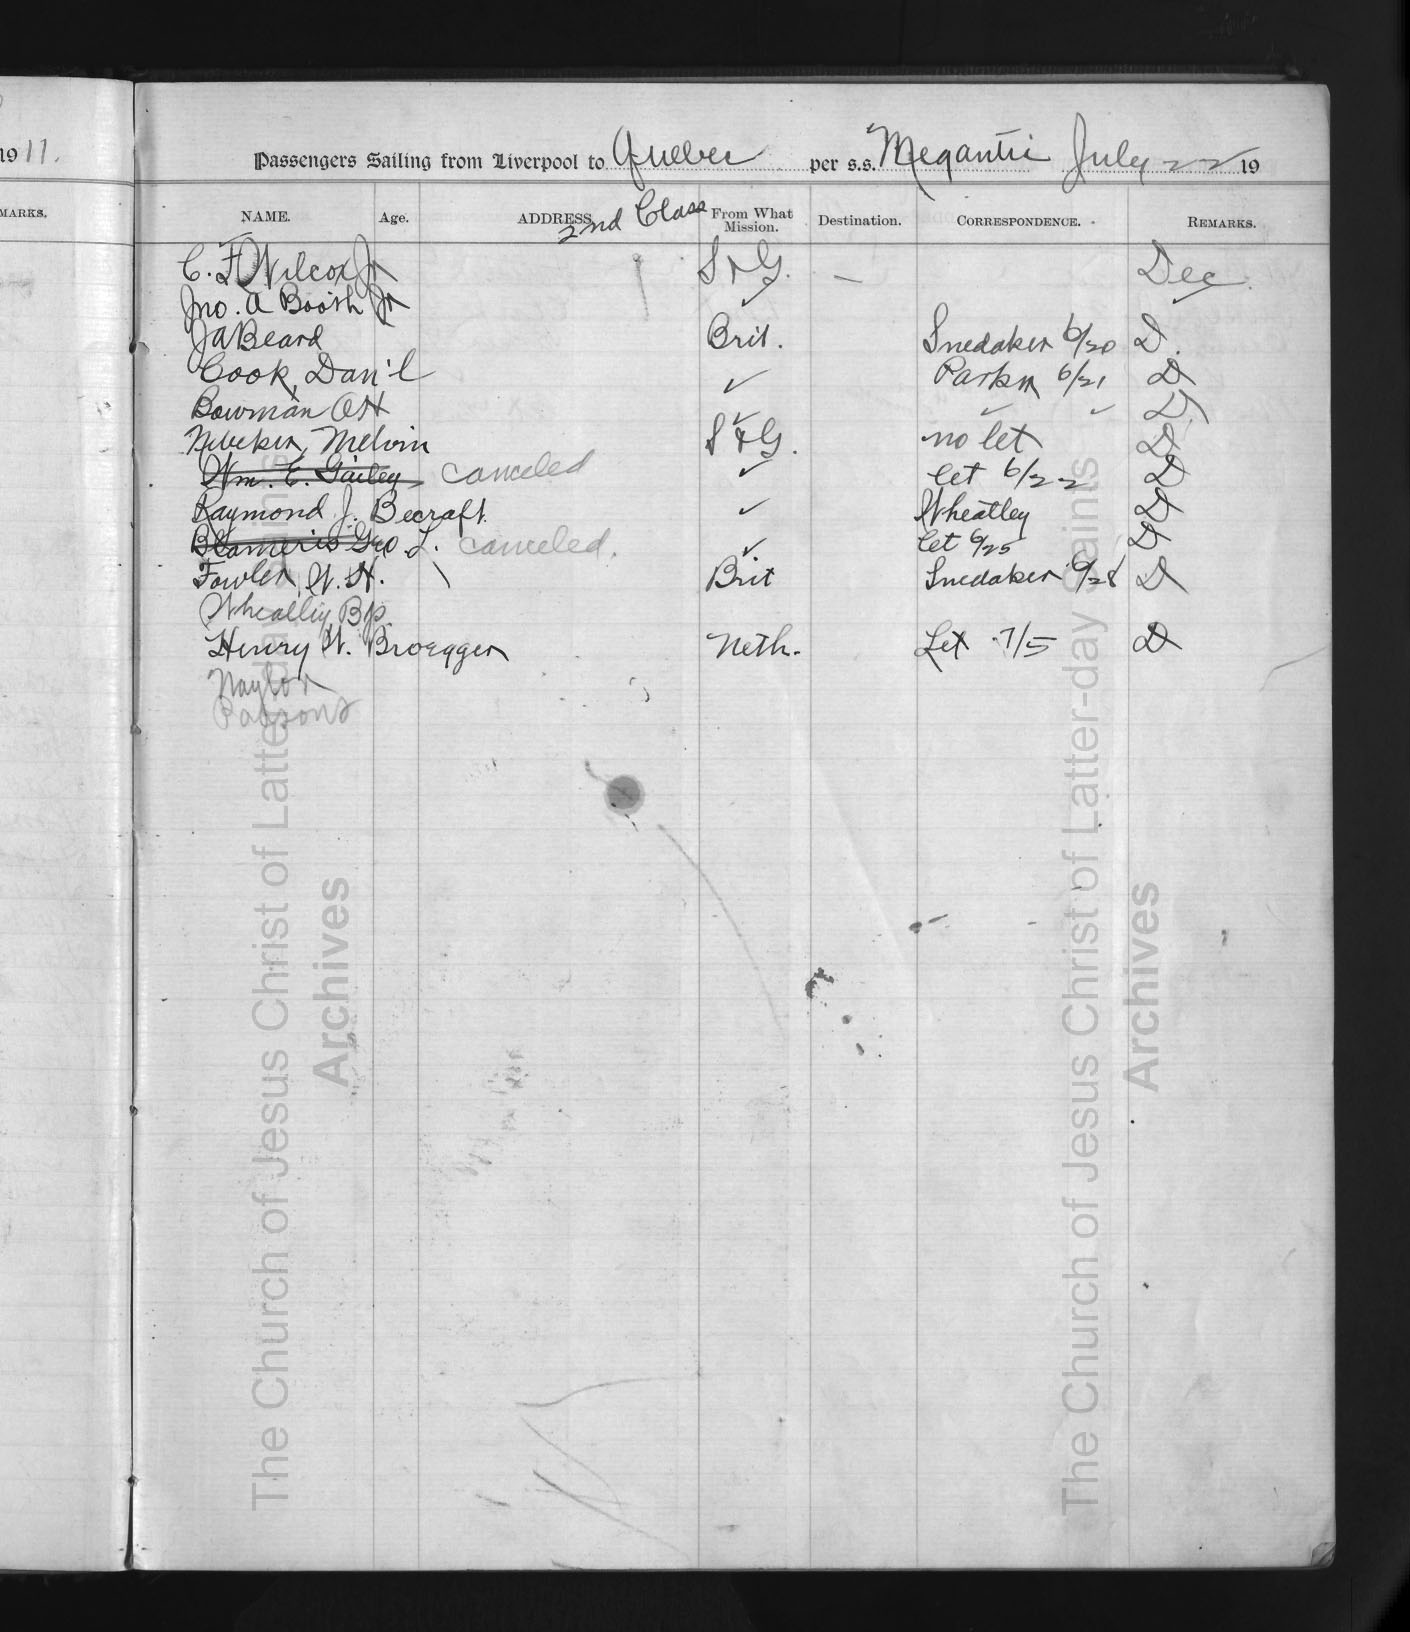 1911.
MARKS.
Passengers Sailing from Liverpool to Quebec per s.s. Megantic July 22 19
NAME. Age. ADDRESS. 2nd Class From What Mission. Destination. CORRESPONDENCE. REMARKS.
C. F. Wilcox Jr S & G. — Dec.
Jno. A Booth Jr ✓ ✓
J A Beard Brit. Snedaker 6/20 D.
Cook, Dan'l ✓ Parkn 6/21 D
Bowman O H ✓ ✓ ✓ D
Nebeker, Melvin S & G. no let D
Wm. E. Gailey canceled ✓ let 6/22 D
Raymond J. Becraft. ✓ Wheatley D
Geo L. canceled. ✓ let 6/25 D
Fowler, W. H. \ Brit Snedaker 6/28 D
Wheatley Bp.
Henry W. Broegger Neth. Let 7/5 D
Naylor
Parsons
The Church of Jesus Christ of Latter-day Saints
Archives
The Church of Jesus Christ of Latter-day Saints
Archives